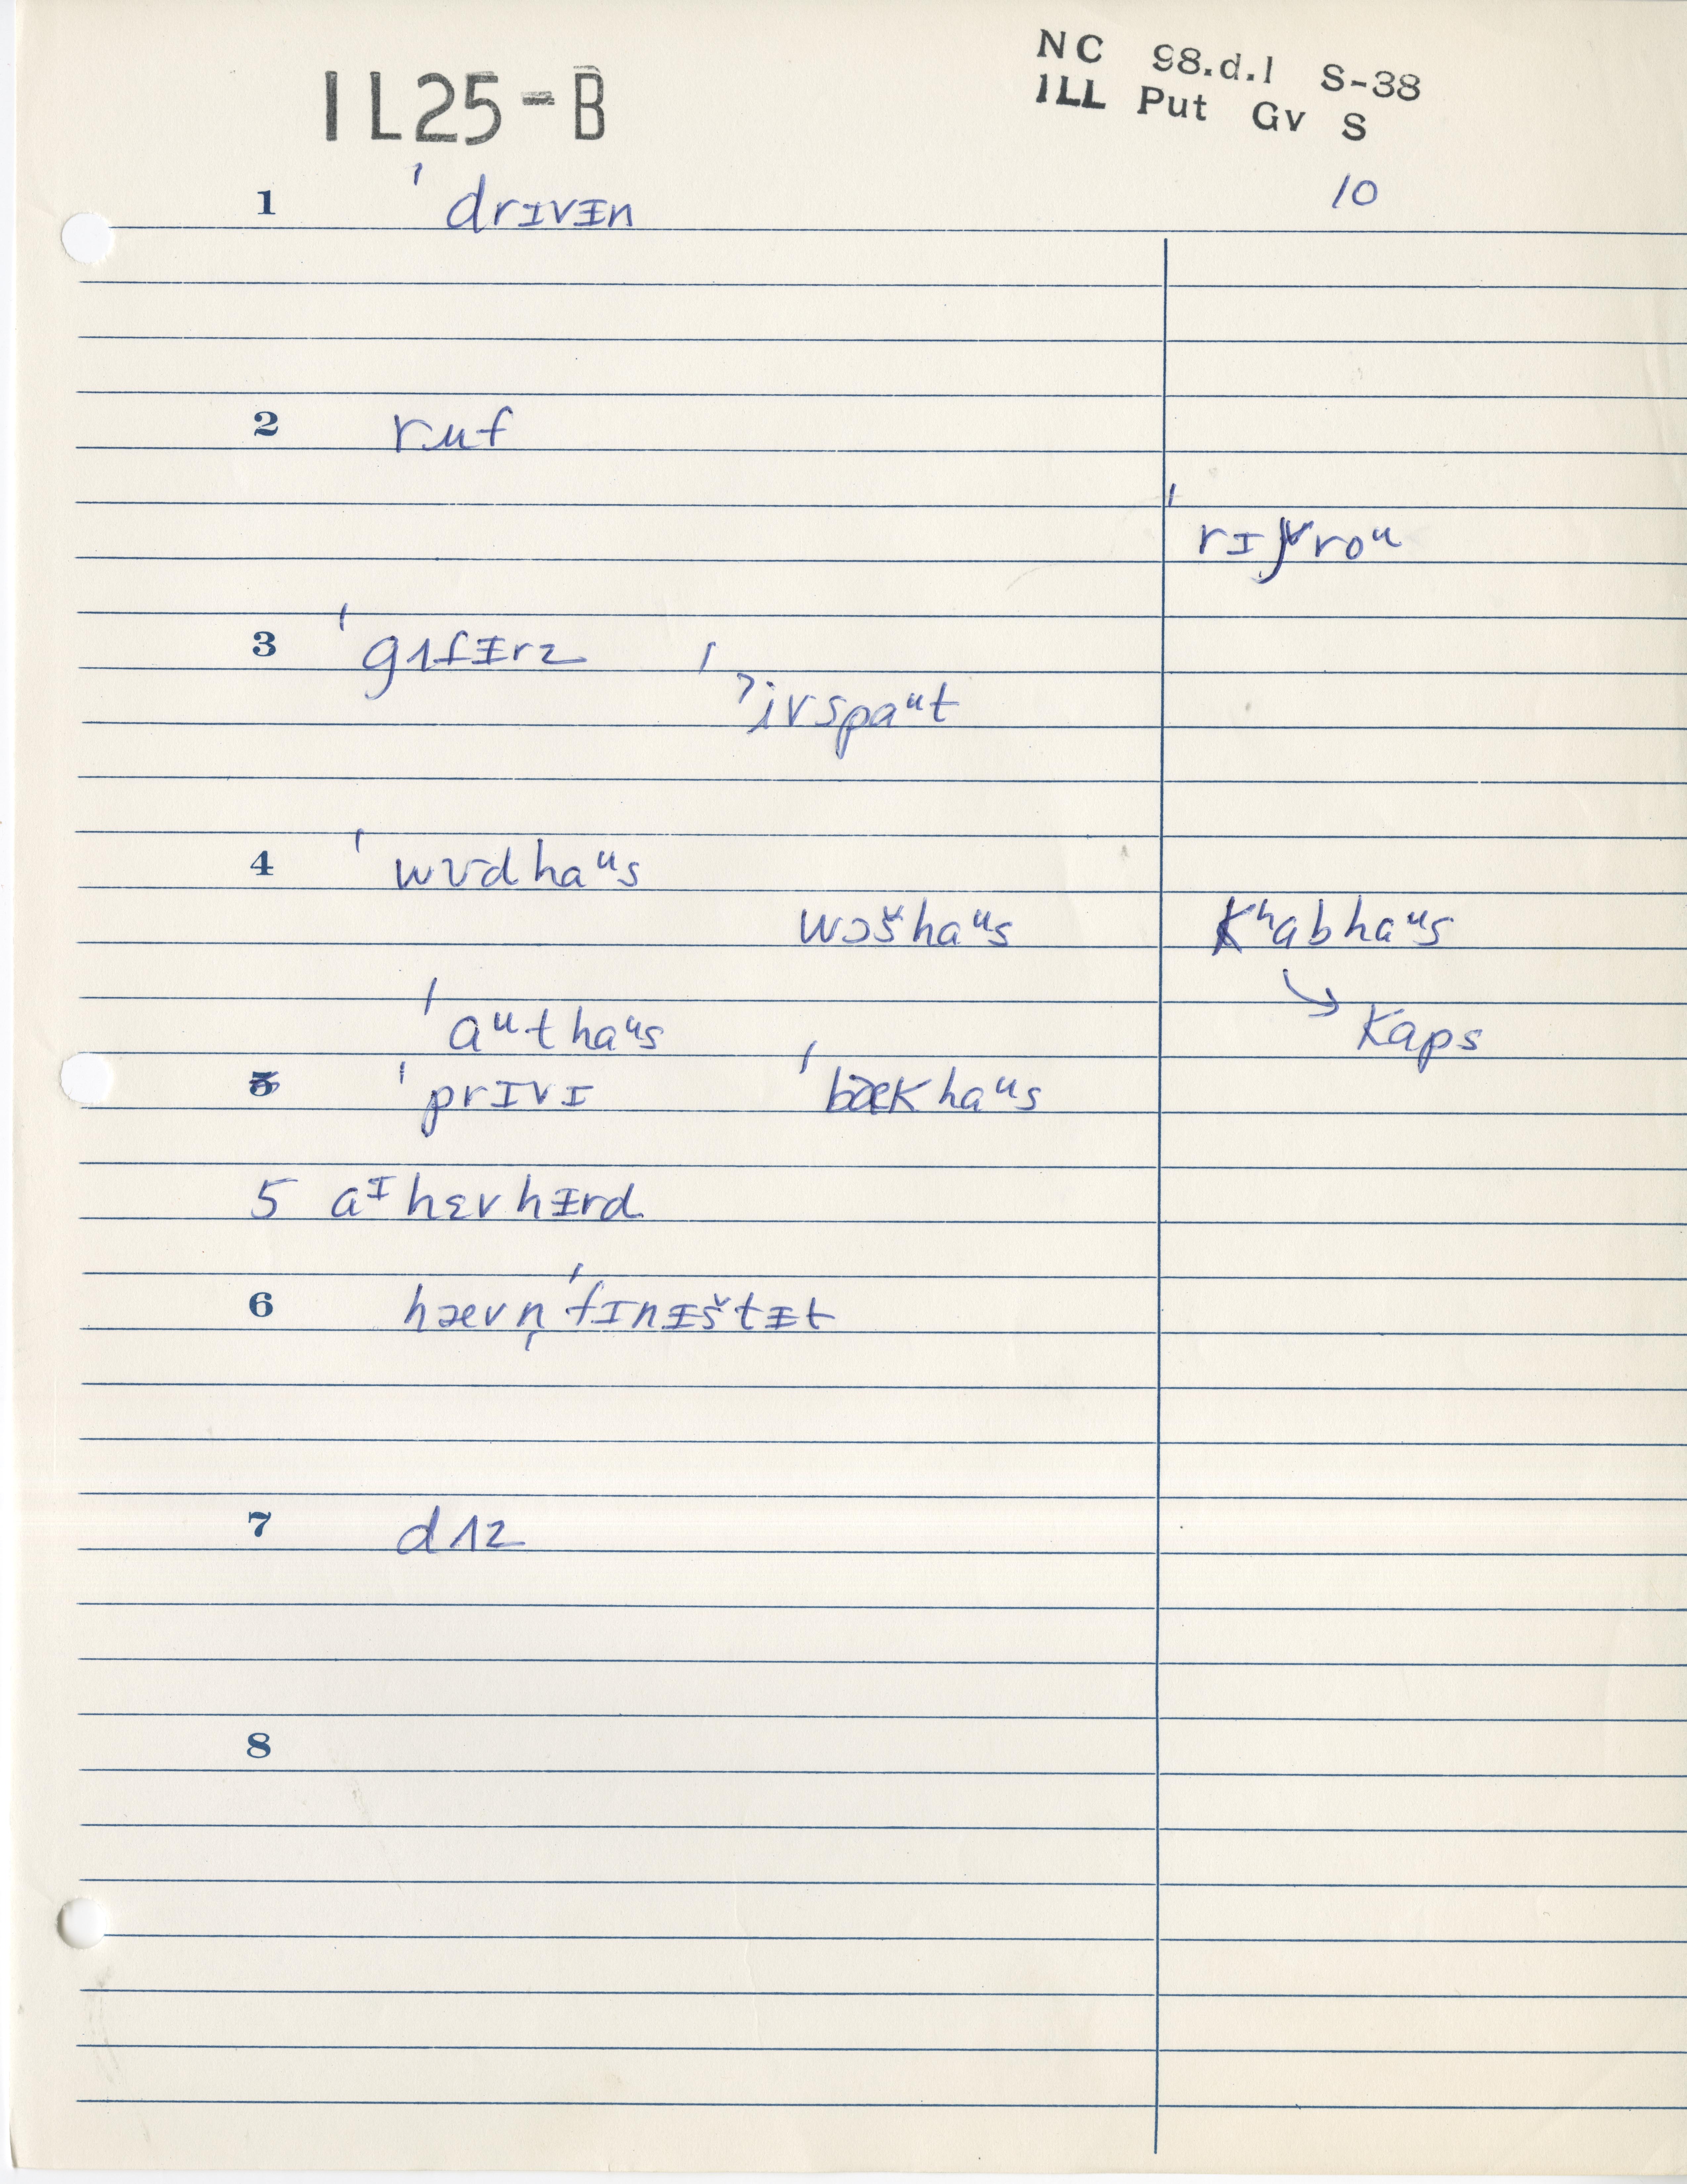 IL25-B
NC 98.d.1 S-38
ILL Put Gv S
10
1 ˈdrɪvᵻn
2 ruf
3 ˈgʌfᵻrz ˈʔivspaᵘt
4 ˈwʊdhaᵘs
wɔšhaᵘs kʰabhaᵘs
↘ kaps
ˈaᵘthaᵘs
5 ˈprɪvɪ ˈbækhaᵘs
5 aᶦhɛvhᵻrd
6 hævn̩ˈfɪnᵻštᵻt
7 dʌz
8